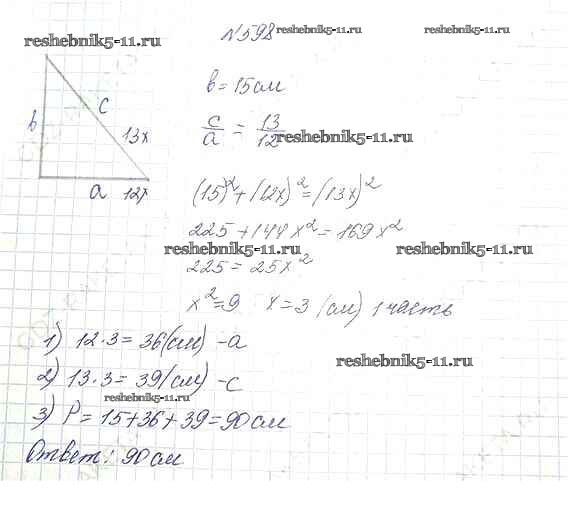 reshebnik5-11.ru
№598 reshebnik5-11.ru
reshebnik5-11.ru
b = 15 см
b
c
13x
a 12x
c/a = 13/12
reshebnik5-11.ru
(15)² + (12x)² = (13x)²
225 + 144x² = 169x²
reshebnik5-11.ru
reshebnik5-11.ru
225 = 25x²
x² = 9 x = 3 (см) 1 часть
1) 12·3 = 36 (см) - a
reshebnik5-11.ru
2) 13·3 = 39 (см) - c
reshebnik5-11.ru
3) P = 15 + 36 + 39 = 90 см
Ответ: 90 см